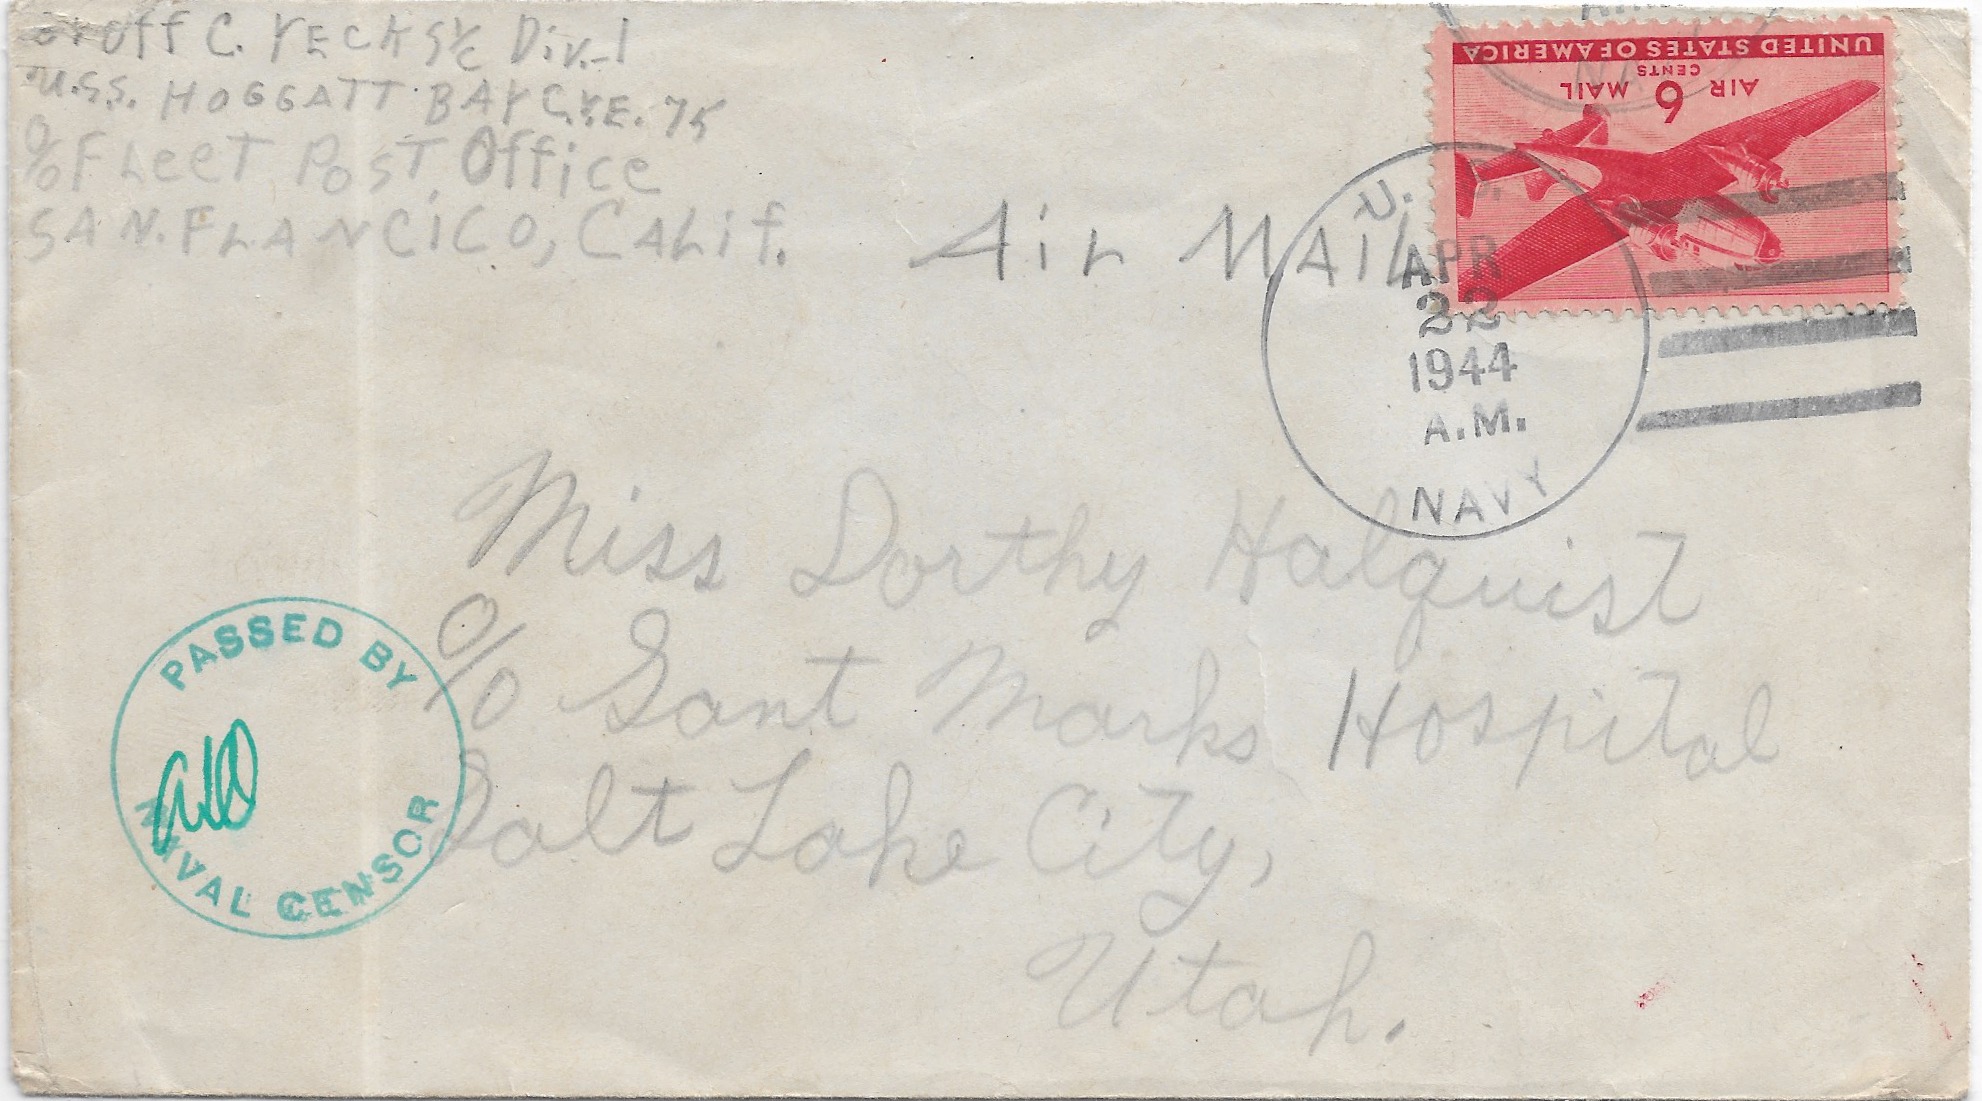 off C. YECK S1/C Div-1
U.S.S. HOGGATT BAY C.V.E. 75
c/o FLeeT PosT Office
SAN. FLANCiCO, CALif.
Air MAIL
UNITED STATES OF AMERICA
AIR 6 MAIL
CENTS
U. S.
APR
22
1944
A.M.
NAVY
Miss Dorthy Halquist
c/o Sant Marks Hospital
Salt Lake City,
Utah.
PASSED BY
NAVAL CENSOR